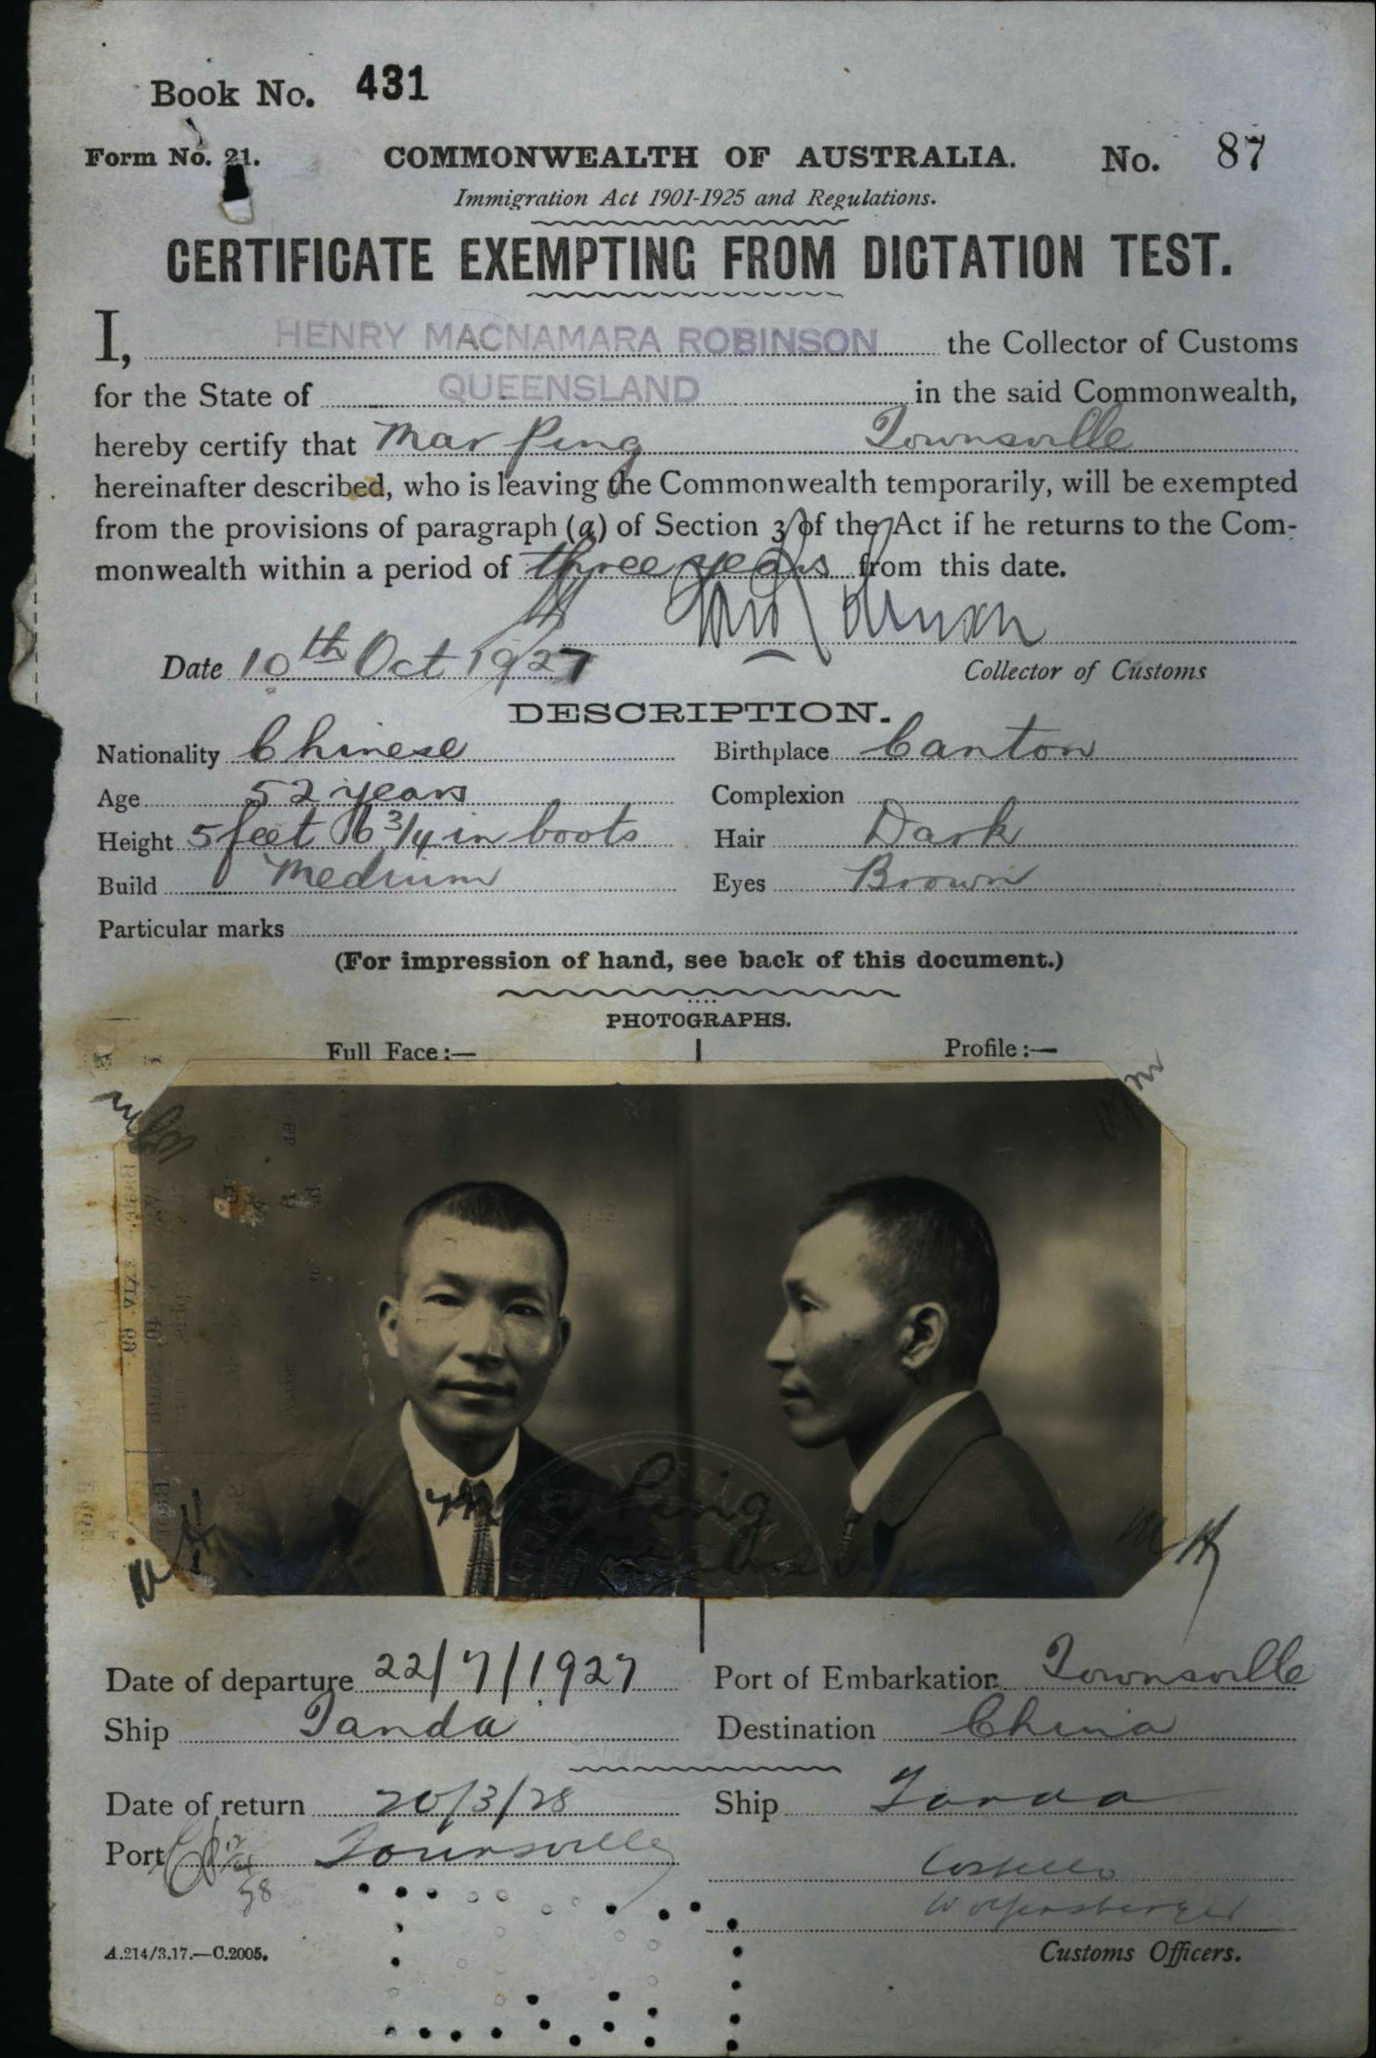 Book No. 431
Form No. 21. COMMONWEALTH OF AUSTRALIA. No. 87
Immigration Act 1901-1925 and Regulations.
CERTIFICATE EXEMPTING FROM DICTATION TEST.
I, HENRY MACNAMARA ROBINSON the Collector of Customs
for the State of QUEENSLAND in the said Commonwealth,
hereby certify that Mar Ping Townsville
hereinafter described, who is leaving the Commonwealth temporarily, will be exempted
from the provisions of paragraph (a) of Section 3 of the Act if he returns to the Com-
monwealth within a period of three years from this date.
Date 10th Oct 1927 Collector of Customs
DESCRIPTION.
Nationality Chinese Birthplace Canton
Age 52 years Complexion
Height 5 feet 6 3/4 in boots Hair Dark
Build Medium Eyes Brown
Particular marks
(For impression of hand, see back of this document.)
PHOTOGRAPHS.
Full Face:— Profile:—
Mar Ping
Date of departure 22/7/1927 Port of Embarkation Townsville
Ship Tanda Destination China
Date of return 20/3/28 Ship Tanda
Port Townsville
Costello
Wolfensberger
A.214/3.17.—C.2005. Customs Officers.